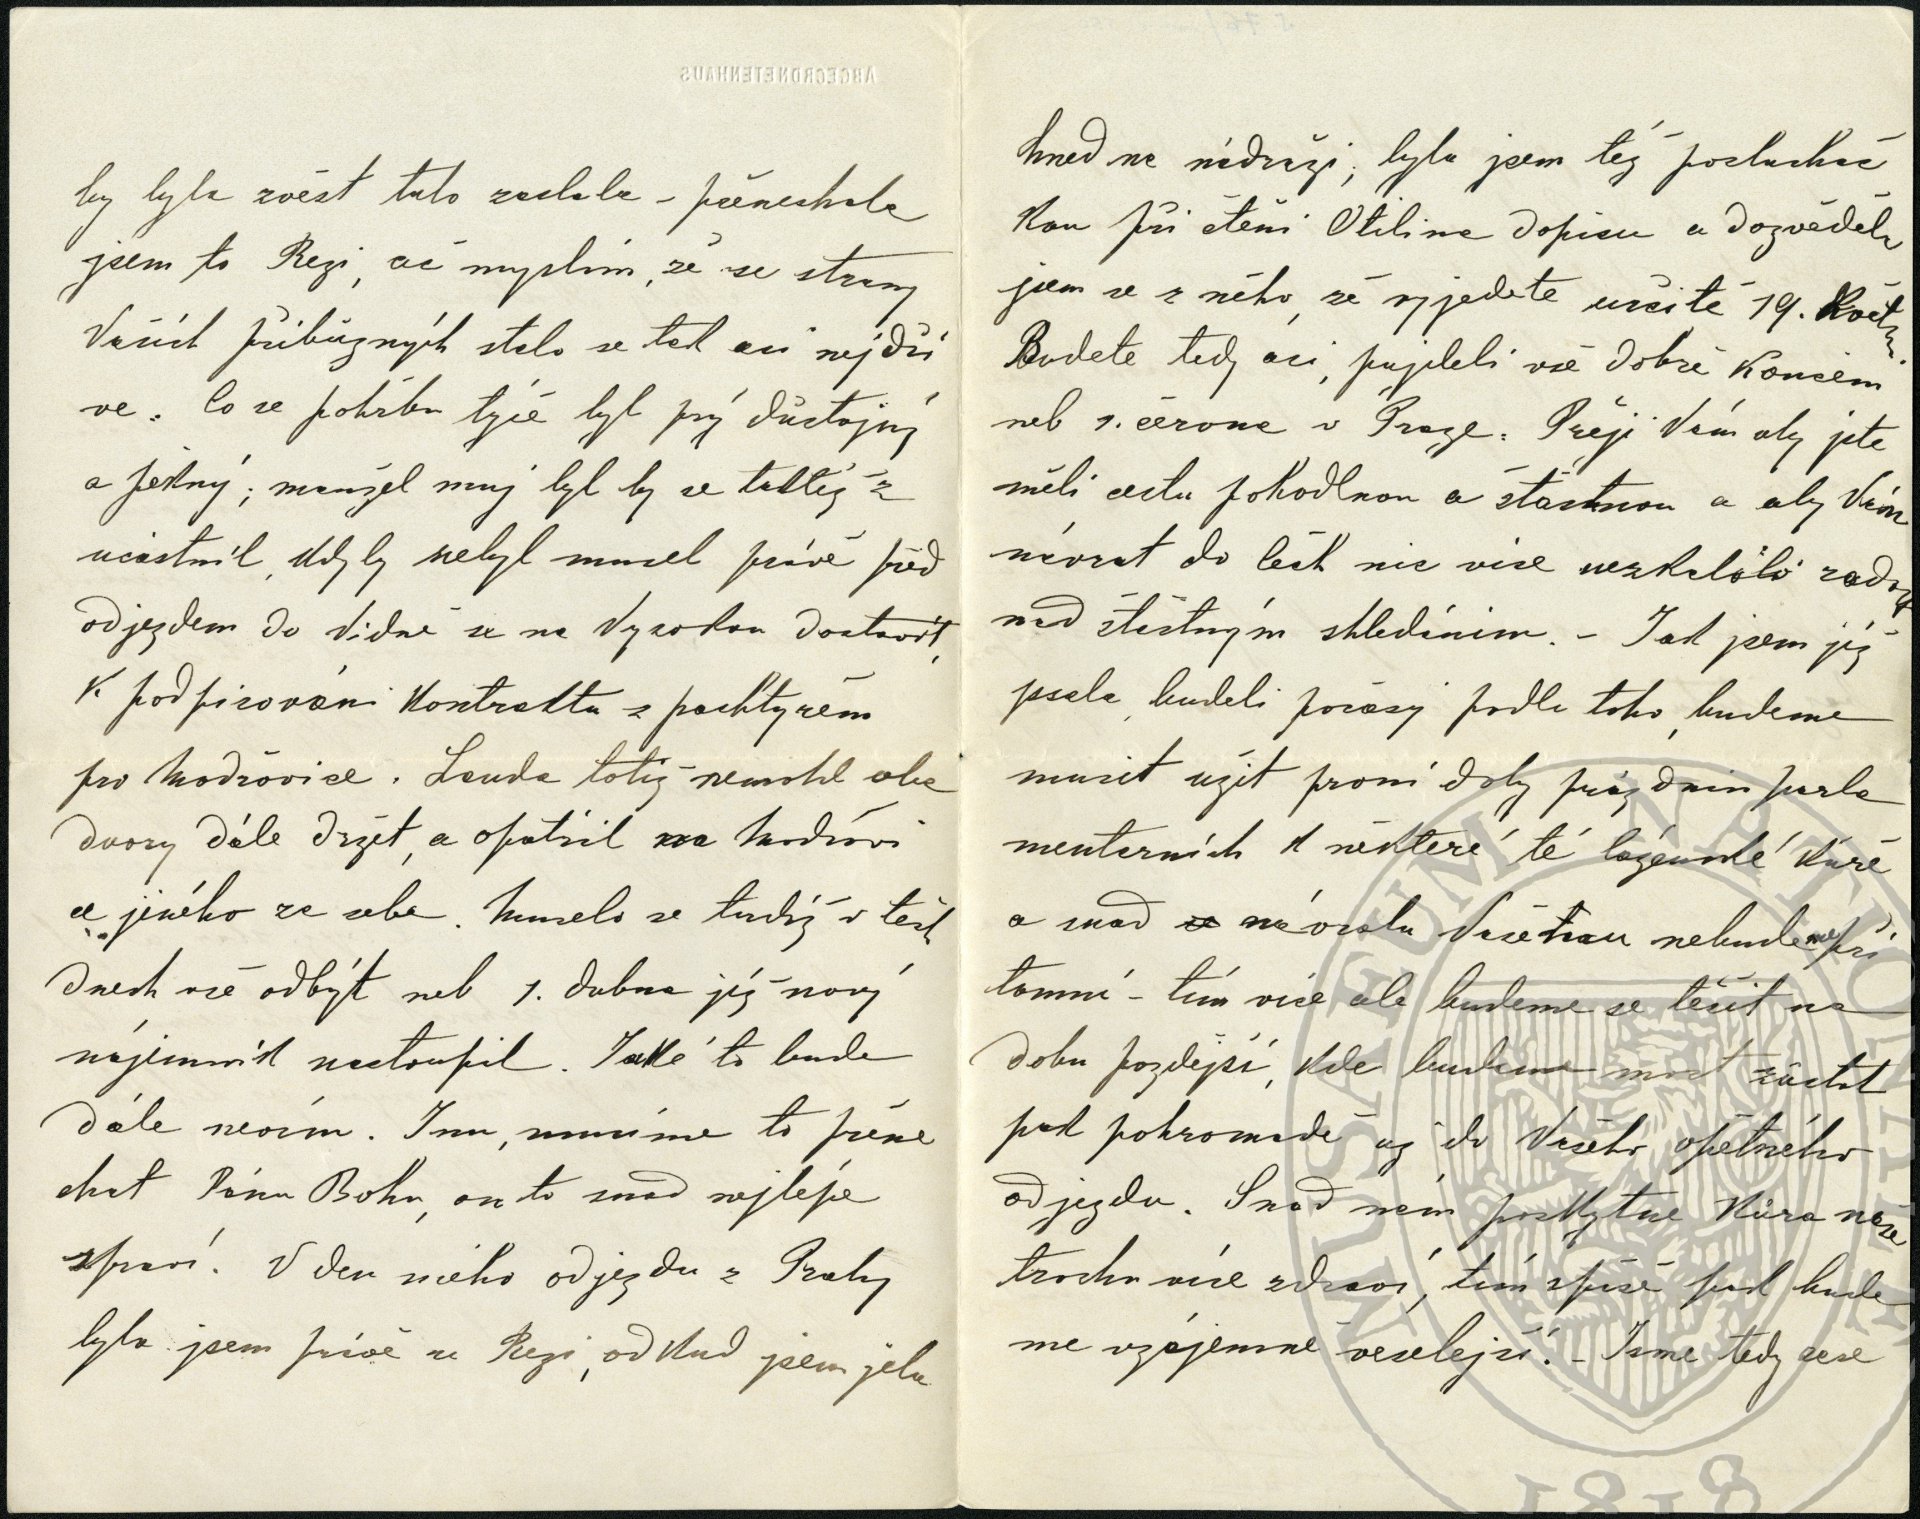 ABGEORDNETENHAUS
by byla zvěst tuto zaslala – přenechala
jsem to Rezi, ač myslím, že se strany
Vašich příbuzných stalo se tak asi nejdří
ve. Co se pohřbu týče byl prý důstojný
a pěkný; manžel muj byl by se taktéž z
účastnil, kdyby nebyl musel právě před
odjezdem do Vídně se na Vysokou dostavit,
k podpisování kontraktu s pachtýřem
pro Modřovice. Lauda totiž nemohl oba
dvory dále držet, a opatřil na Modřovi
ce jiného za sebe. Muselo se tudíž v těch
dnech vše odbýt neb 1. dubna již nový
nájemník nastoupil. Jaké to bude
dále nevím. Inu, musíme to přene
chat Pánu Bohu, on to snad nejlépe
spraví. V den mého odjezdu z Prahy
byla jsem právě u Rezi, odkud jsem jela
hned na nádraží; byla jsem též posluchač
kou při čtení Otilina dopisu a dozvěděla
jsem se z něho, že vyjedete určitě 19. Května.
Budete tedy asi, pujdeli vše dobře koncem
neb 1. června v Praze. Přeji Vám aby jste
měli cestu pohodlnou a šťastnou a aby Vám
návrat do Čech nic více nezkalilo radost
nad šťastným shledáním. – Jak jsem již
psala, budeli počasý podle toho, budeme
muset užit první doby prázdnin parla
mentarních k některé té lázeňské kůře
a snad návratu Vašemu nebudeme pří
tomni – tím více ale budeme se těšit na
dobu pozdější, kde budeme moct zůstat
pak pohromadě až do Vašeho opětného
odjezdu. Snad nám poskytne kůra naše
trochu více zdraví, tím spíše pak bude
me vzájemně veselejší. – Jsme tedy zase
MUSAEUM NAPRSTKOVO
1818